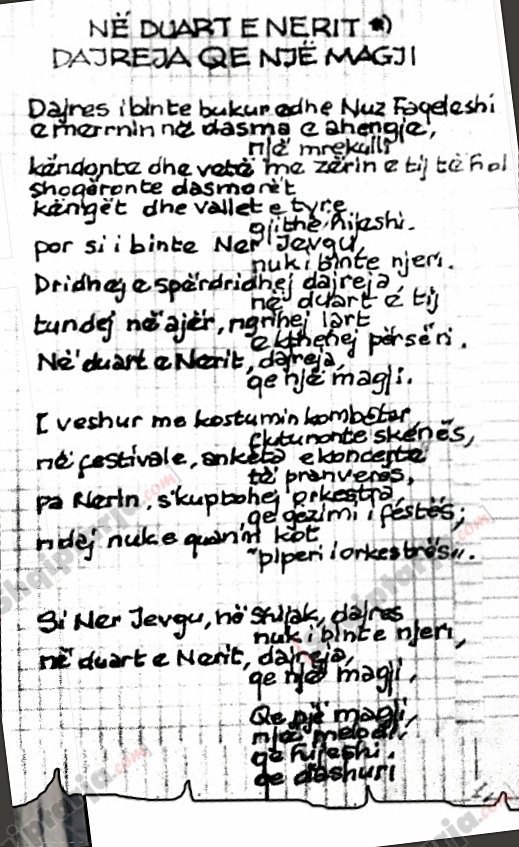 NË DUART E NERIT *)
DAJREJA QE NJË MAGJI
Dajres i binte bukur edhe Nuz Faqeleshi
e merrnin në dasma e ahengje,
një mrekulli
këndonte dhe vetë me zërin e tij të hol
shoqëronte dasmorët
këngët dhe vallet e tyre
gjithë hijeshi.
por si i binte Ner Jevgu,
nuk i binte njeri.
Dridhej e spërdridhej dajreja,
në duart e tij
tundej në ajër, ngrihej lart
e kthehej përsëri.
Në duart e Nerit, dajreja,
qe një magji.
I veshur me kostumin kombëtar
fluturonte skenës,
në festivale, anketa e koncerte
të pranverës,
pa Nerin, s'kuptohej orkestra,
qe gëzimi i festës;
ndaj nuk e quanin kot
"piperi i orkestrës".
Si Ner Jevgu, në Shijak, dajres
nuk i binte njeri,
në duart e Nerit, dajreja,
qe një magji,
Qe një magji,
një melodi,
qe hijeshi,
qe dashuri
shqiptarja.com